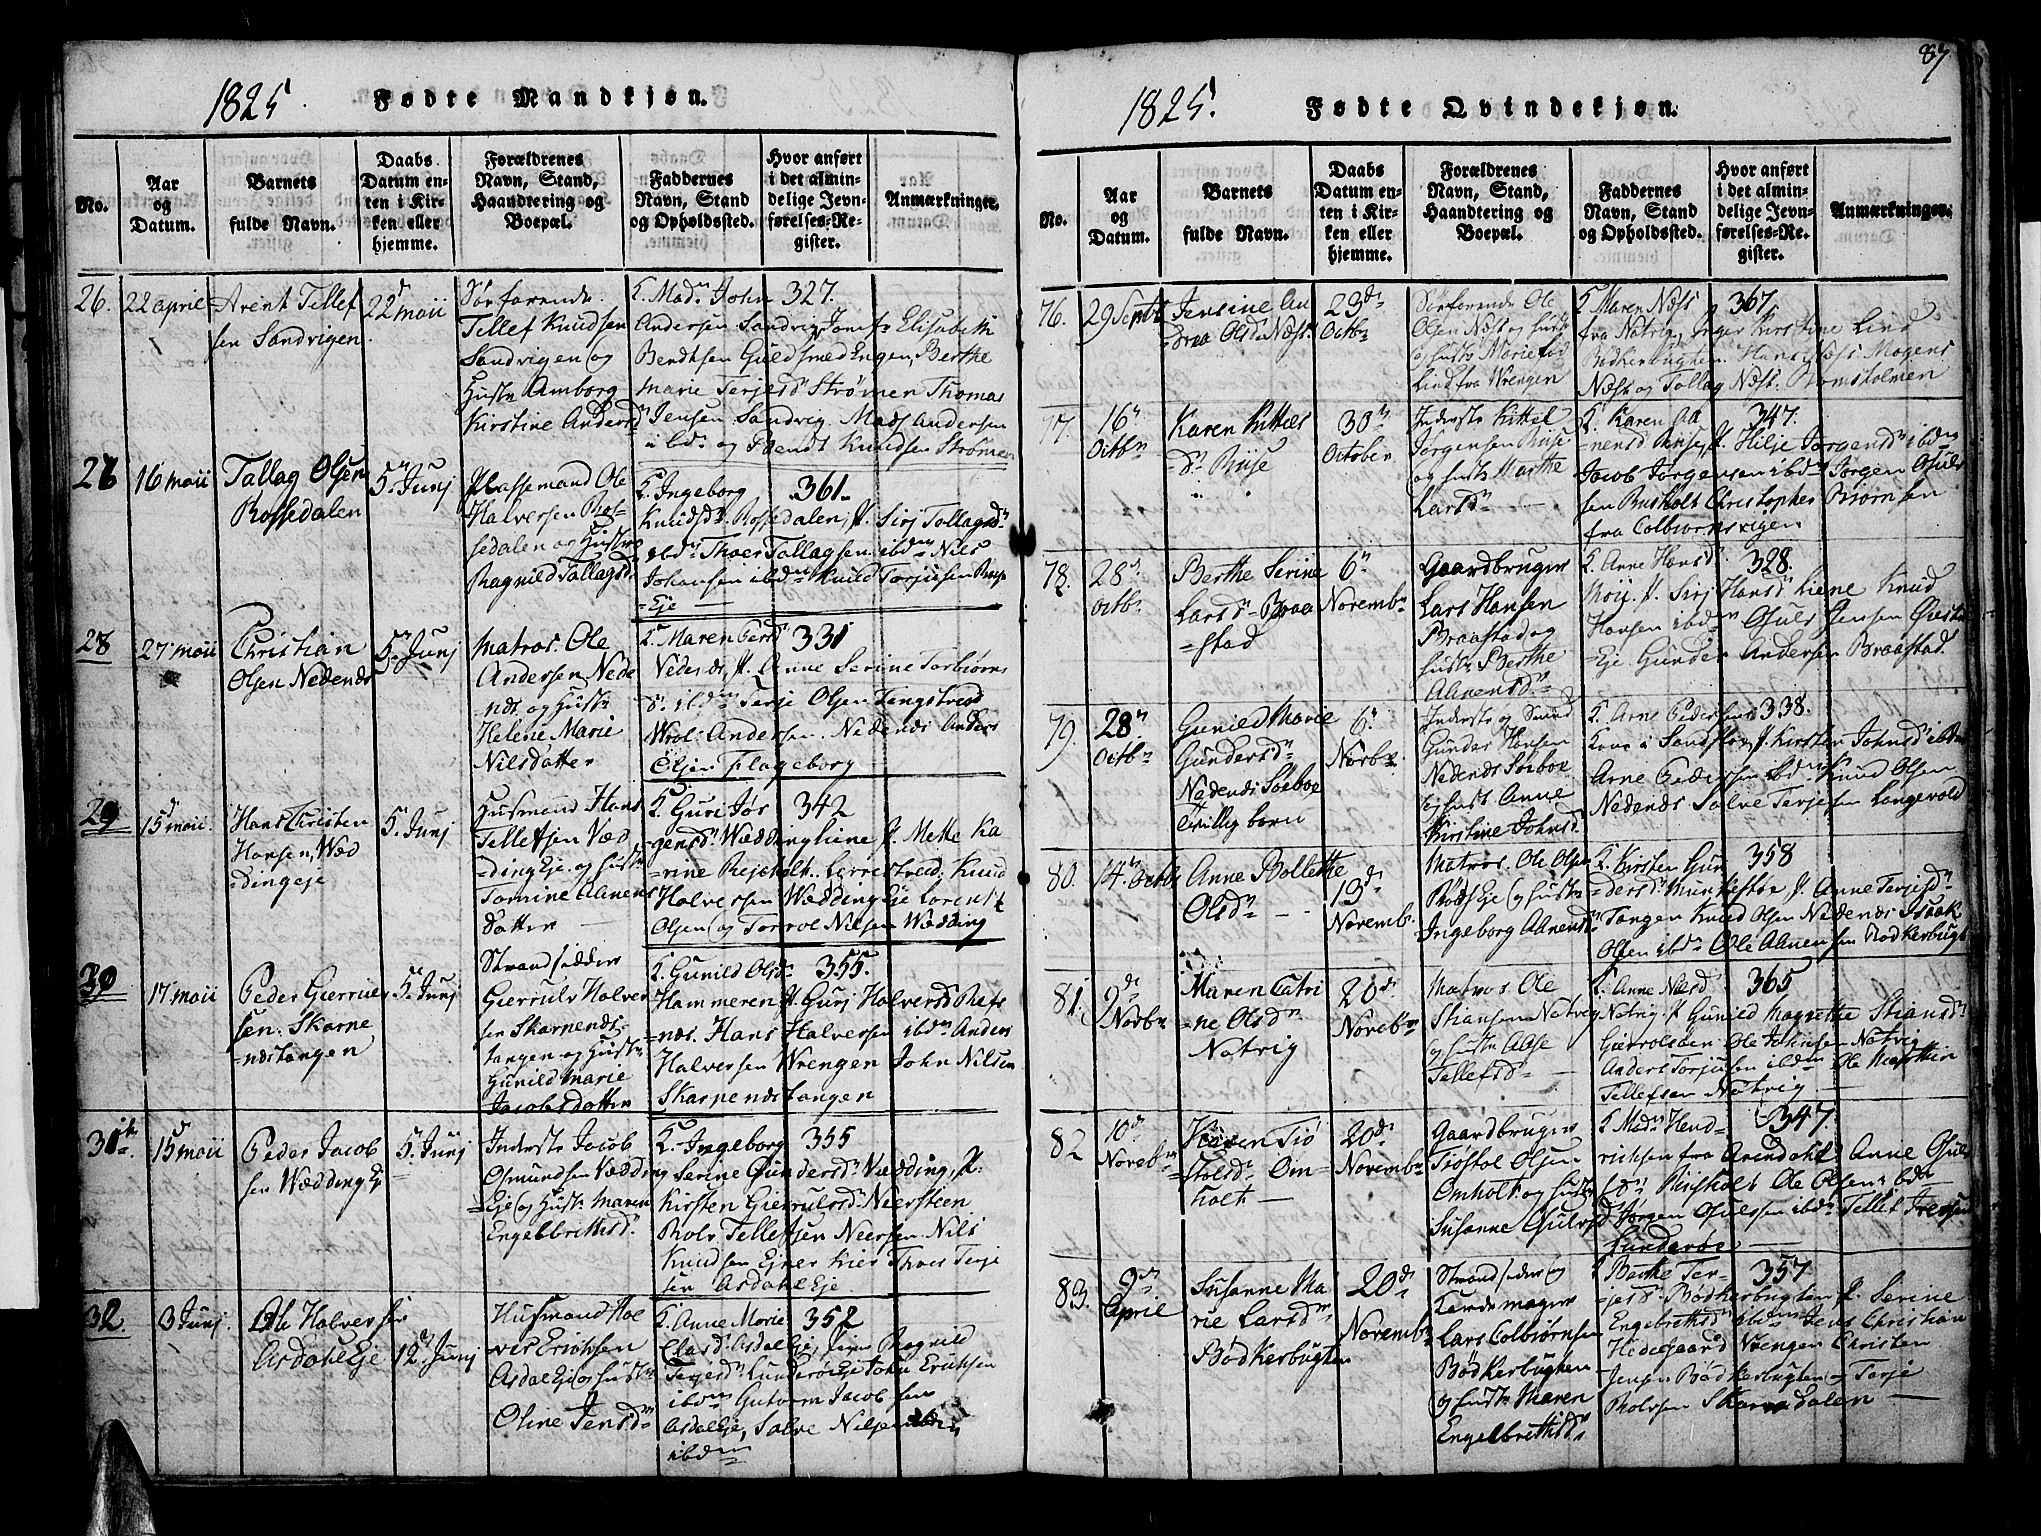 1825. Fødte Mandkjøn.
No.
Aar og Datum.
Barnets fulde Navn.
Daabs Datum enten i Kirken eller hjemme.
Forældrenes Navn, Stand, Haandtering og Boepæl.
Faddernes Navn, Stand og Opholdssted.
Hvor anført i det almindelige Jevnførelses-Register.
Anmærkninger.
26. 22 april
Arent Tellef
sen Sandvigen
22 maii
Søefarende
Tellef Knudsen
Sandvigen og
Hustr Amborg
Kirstine Andersd
Mad. John 327.
Andersen Sandvig, Elisabeth
Bendtsen Guldsmed Engen, Berthe
Marie Terjesd Strømen Thomas
Jensen Sandvig. Mads Andersen
ibd. og Bendt Knudsen Strømen
27 16 maii
Tallag Olsen
Rossedalen
5 Junj
Plassemand Ole
Halversen Ros-
sedalen og Hustr
Ragnild Tallagsd
Ingeborg 361.
Knudsd. Rossedalen, Sirj Tallagsd
ibd Thoer Tallagsen ibd Nils
Johansen ibd Knud Torjusen
=Eje
28 27 maii
Christian
Olsen Nedenæs
5 Junj
Matros. Ole
Andersen Nede
næs. og Hustr
Helene Marie
Nilsdatter
Maren Persd 331
Nedenæs, Anne Serine Torbiørns
d. ibd Terje Olsen Längstved
Wrol. Andersen. Nedenæs Anders
Olsen Flageborg
29 15 maii
Hans Christen
Hansen, Wæd
dingeje
5 Junj
Husmand Hans
Tellefsen Wæd
=ding Eje. og Hustr
Tomine Aanens
datter
Guri Jør 342
gensd Wædding Mette Ka
=rine Rejeholt. Knud
Halversen Wædding Eje Lorents
Olsen og Torvol Nilsen Wædding
30 17 maii
Peder Gierrues
sen. Skarne
=næstangen
5 Junj
Strandsidder
Gierrulv Halver
sen Skarpenæs.
tangen og Hustr
Gunild Marie
Jacobsdatter
Gunild Olsd. 355.
Hammeren Gurj Halversd
=næs. Hans Halversen ibd Anders
Halversen Wrengen John Nilsen
Skarpenæstangen
31 15 maii
Peder Jacob
sen Wædding Ej
5 Junj
Inderste Jacob
Osmundsen Wædding
Eje og Hustr Maren
Engelbrettsd.
Ingeborg 355
Serine Gundersd Wædding,
Kirsten Gierrulvsd Neersteen
Rolv Tellefsen Neersen Nils
Knudsen Thoer Terje
sen Asdahl Eje
32. 3 Junj.
Ole Halversen
Asdahl Eje
12 Junj
Husmand Hal
ver Ericksen
Asdal Eje og Hustr
Oline Jensd
Anne Marie 352
Olasd. Asdal Eje, Ragnild
Terjesd Lunderøe John Ericksen
ibd Gutorm Jacobsen
Asdal Eje, Salve Nilsen
ibd
87
1825. Fødte Qvindekjøn.
No.
Aar og Datum.
Barnets fulde Navn.
Daabs Datum enten i Kirken eller hjemme.
Forældrenes Navn, Stand, Haandtering og Boepæl.
Faddernes Navn, Stand og Opholdssted.
Hvor anført i det almindelige Jevnførelses-Register.
Anmærkninger.
76. 29 Septb
Jensine An
drea Olsdn Næss
23 Octb
Søefarende Ole
Olsen Næss og Hust
Lind fra Wrengen
Maren Næss 367.
fra Natvig. Inger Kirstine Lind
Bødkerbugten. Hans Næss Mogens
Næss og Tallag Næss.
77. 16 Octb
Karen Kittels
d Riise
30 October
Inderste Kittel
Jørgensen Riise
og Hust Marthe
Larsd
Karen Aa 347.
nensd Riise, Jørgensd ibd
Jacob Jørgensen ibd Jørgen Osuls
sen Riisholt Christopher Biørnsen
fra Colbiørnsvigen
78. 28 Octb
Berthe Serine
Larsd Braa
=stad
6 Novemb
Gaardbruger
Lars Hansen
Braastad og
Hust Berthe
Aanensd
Anne Hansd 328.
Sirj Hansd Liene Knud
Hansen ibd Osuls Jensen
=Eje Gunder Andersen Braastad.
79. 28 Octb
Gunild Marie
Gundersd
Nedenæs Soeboe
tvillig barn
6 Novb
Inderste og Smed
Gunder Hansen
Nedenæs Soeboe
og Hust Anne
Kirstine Johnsd.
Arne Pedersens 338.
Kone i Sandstøe, Kirsten Johnsd ibd
Arne Pedersen ibd Knud Olsen
Nedenæs Salve Terjesen Langevold
80. 14 Octb
Anne Bollette
Olsd
13 Novemb.
Matros. Ole Olsen
Røds Eje og Hustr
Ingeborg Aanensd
Kirsten Gun 358
dersd Munkestøe Anne Terjesd
Tangen Knud Olsen Nedenæs Isaak
Olsen ibd Ole Aanensen Bødkerbugt
81. 9 Novb
Maren Catri
=ne Olsd
Natvig
20 Noveb
Matros Ole
Stiansen Natvig
og Hustr Aase
Tellefsd
Anne Nilsd 365
Natvig Gunild Magrethe Stiansd
Ole Johnsen Natvig
Anders Torjusen ibd Ole Martin
Tellefsen Natvig
82 10 Noveb
Karen Tiø
stolsd. Om
holt
20 Novemb
Gaardbruger
Tiøstol Olsen
Omholt og Hustr
Susanne Osulsd
Mad. Hend- 347.
richsen fra Arendahl Anne Osuls
d Riisholt Ole Olsen ibd
Jørgen Osulssen ibd Tellef Iversen
Lunderøe
83. 9 April
Susanne Ma
rie Larsd
Bødkerbugten
20 Novemb
Strandsidder og
Lars Colbiørnsen
Bødkerbugten
og Hustr Maren
Engelbrettsd
Berthe Ter- 357
jesd Bødkerbugten Serine
Engebrettsd ibd Jens Christian
Hedegaard Wrengen Christen
Jensen Bødkerbugten og Terje
Rolvsen Skarvedalen